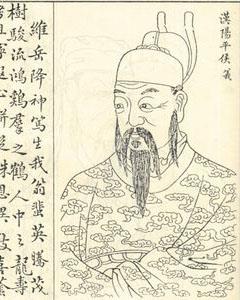 漢陽平侯義
維岳降神篤生我翁蜚英騰茂
樹駿流鴻鷄羣之鶴人中之龍壽